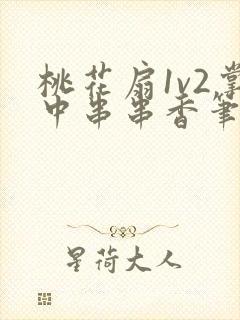 桃花扇1v2掌
中串串香笔
星荷大人